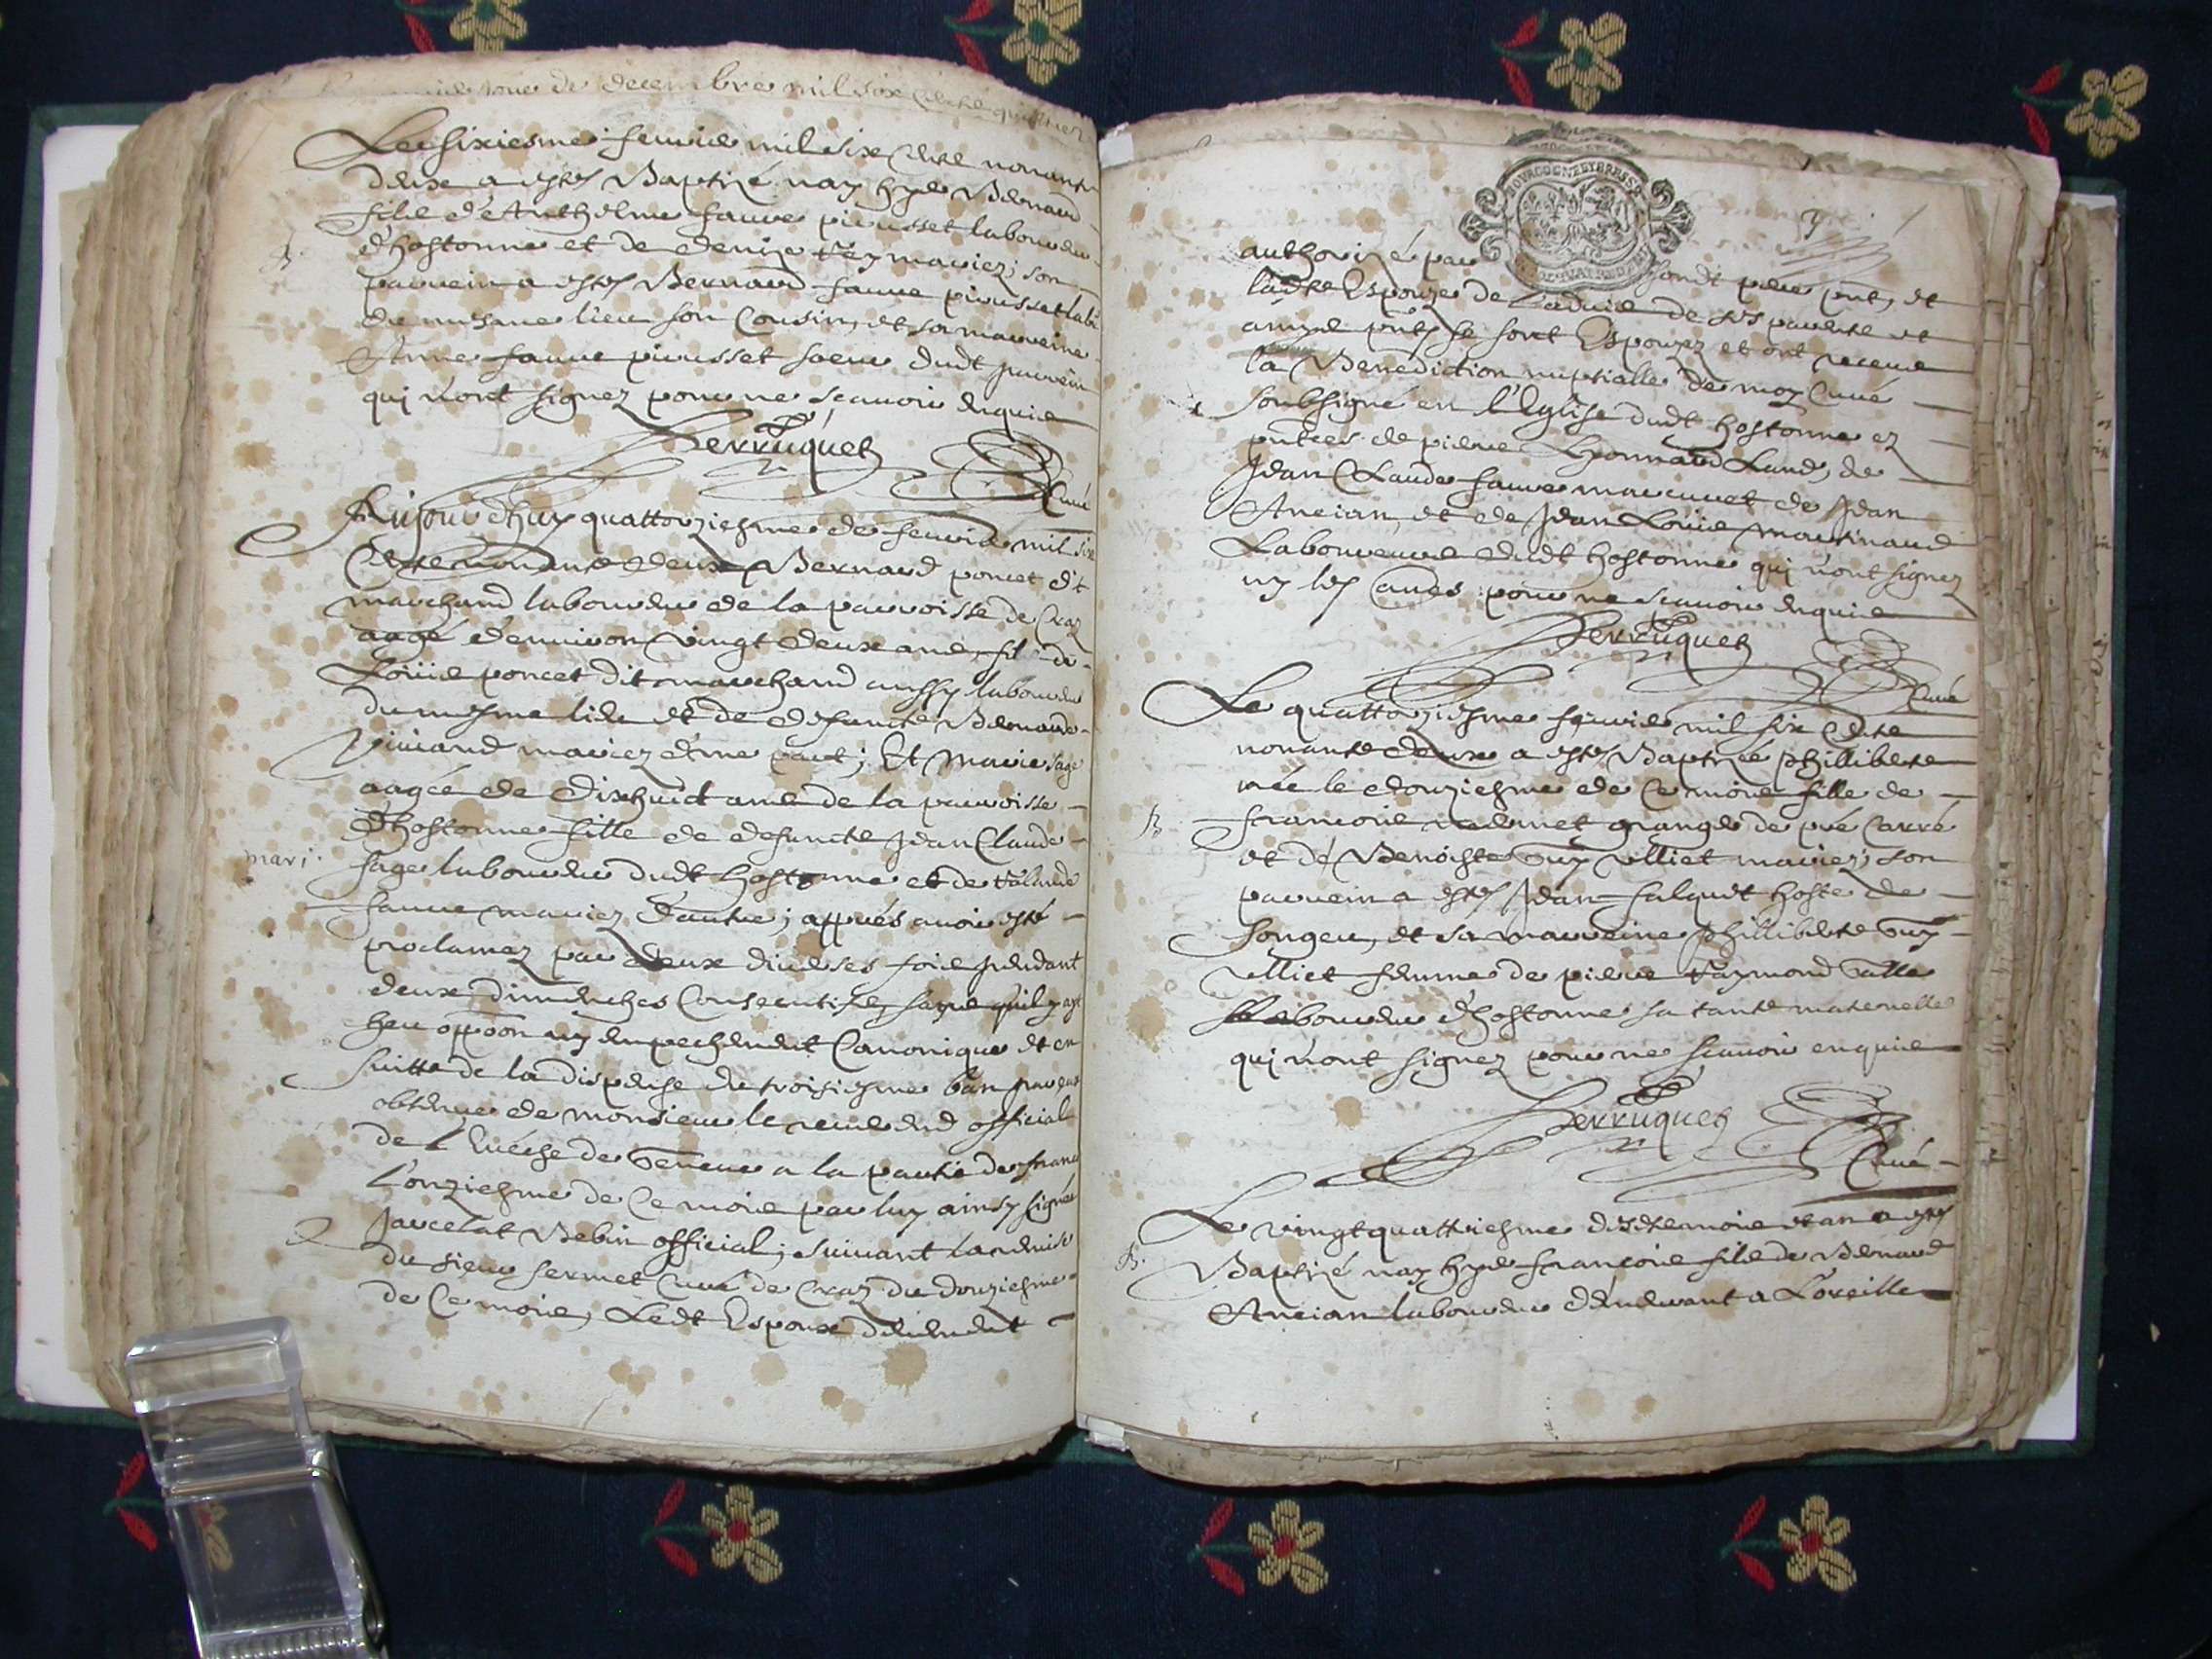 jour de decembre mil six cents quattre
Le sixiesme feuvrier mil six cents nonante
deux a esté Baptizé nay hyer Bernard
fils d'Anthelme fauvre pirousset laboureur
d'hostonne et de denize Rey mariez; son
B.
parrein a esté Bernard fauvre pirousset lab.
du mesme lieu son Cousin, et sa marreine
Anne fauvre pirousset soeur dudt parrein
qui n'ont signez pour ne scavoir enquis
Perruquet
Curé
Aujourd'huy quattorziesme de feuvrier mil six
Cents nonante deux Bernard poncet dit
marchand laboureur de la parroisse de Craz
aagé d'environ vingt deux ans, fils de
Loüis poncet dit marchand aussy laboureur
du mesme lieu et de defuncte Bernarde
mariez d'une part; Et Marie sage
aagée de dixhuict ans de la parroisse
d'hostonne fille de defuncts Jean Claude
mari.
sage laboureur dudt hostonne et de
fauvre mariez d'autre; apprés avoir esté
proclamez par deux diverses fois pendant
deux dimenches Consecutifs, sans qu'il y ayt
heu oppoon ny empechement Canonique et en
suitte de la dispense du troisiesme ban par eux
obtenue de monsieur le reverend official
de l'Evéché de Geneve a la partie de france
l'onziesme de Ce mois par luy ainsy signée
Jarcelat Bebin official; suivant la remise
du sieur sermet Curé de Craz du douziesme
de Ce mois, Ledt Espoux deuement
authorizé par sondt pere pnt, et
ladte Espouze de l'advis de ses parents et
amys pnts se sont Espouzez et ont receue
la Benediction nuptialle de moy Curé
soubsigné en l'Eglise dudt hostonne ez
pntces de pierre Honnard Land, de
Jean Claude fauvre marcuret de Jean
Ancian, et de Jean Loüis martinaud
Laboureurs dudt hostonne qui n'ont signez
ny les autres pour ne scavoir enquis
Perruquet
Curé
Le quattorziesme feuvrier mil six Cents
nonante deux a esté Baptizée philliberte
née le douziesme de Ce mois fille de
B.
francois grange de pré Carré
et de Benoiste Guy villiet mariez; son
parrein a esté Jean falquet hoste de
Songeu, et sa marreine philliberte Guy
villiet femme de pierre Raymond
laboureur d'hostonne sa tante maternelle
qui n'ont signez pour ne scavoir enquis
Perruquet
Curé
Le vingtquattriesme desdts mois et an a esté
B.
Baptizé nay hyer francois fils de Bernard
Ancian laboureur demeurant a Loreille